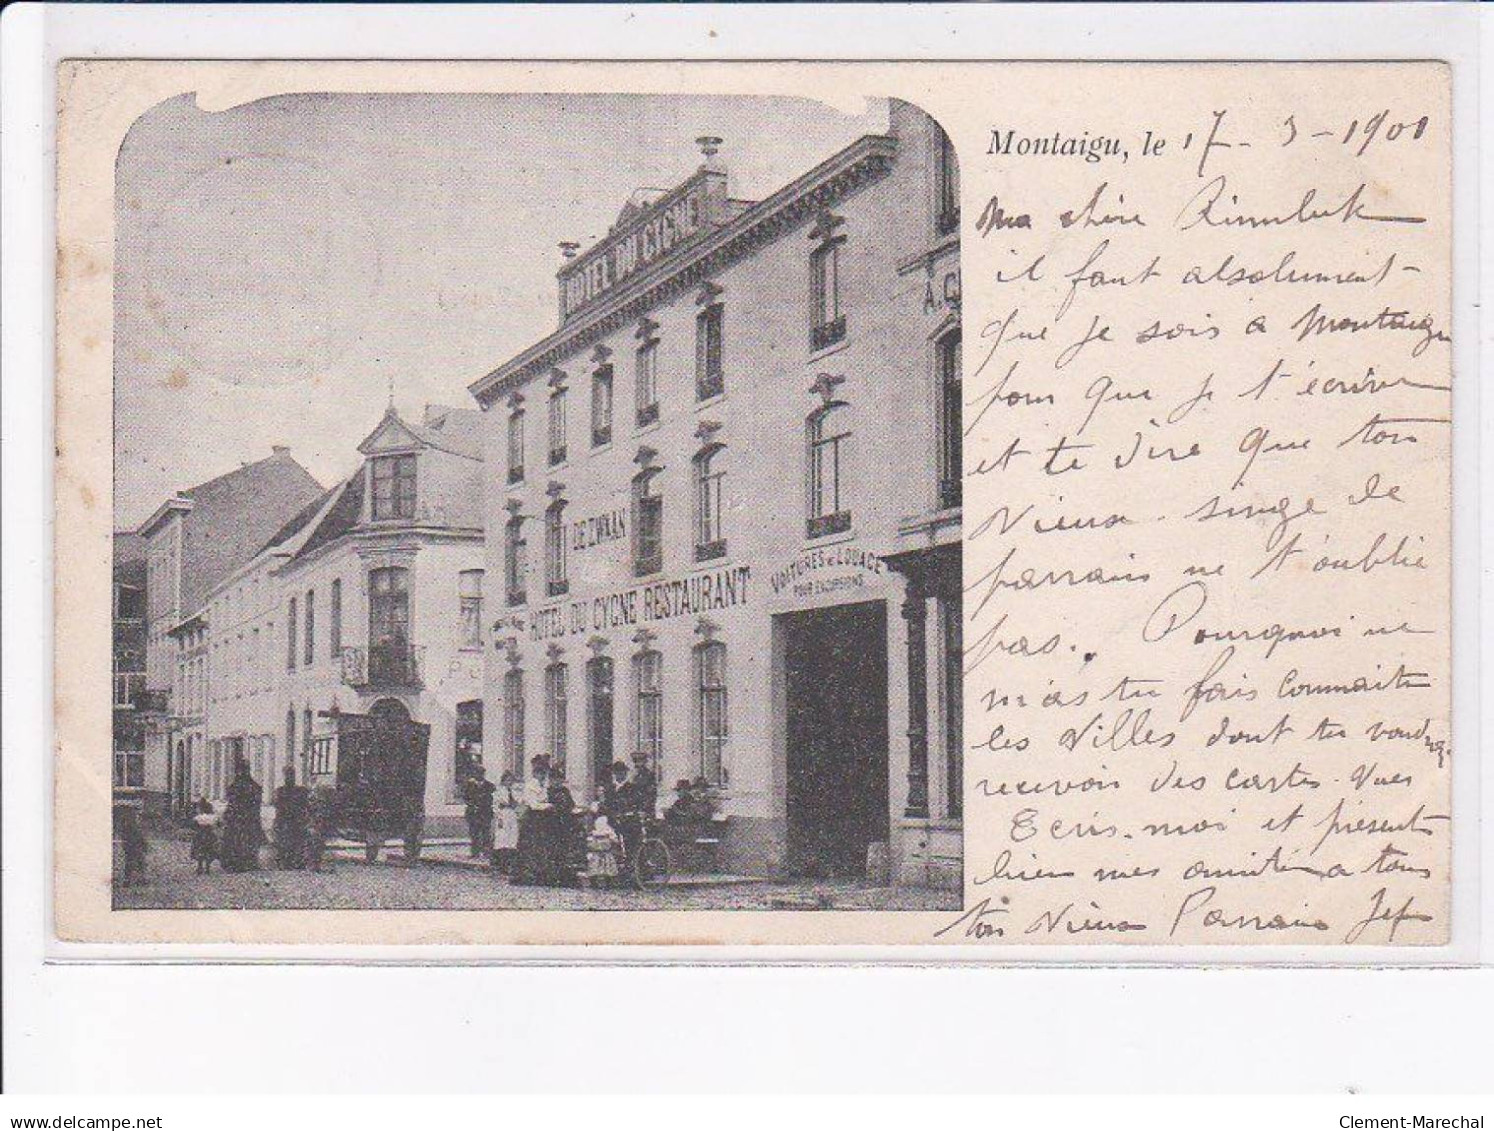 HOTEL DU CYGNE
A. C
DE ZWAAN
HOTEL DU CYGNE RESTAURANT
VOITURES DE LOUAGE
POUR EXCURSIONS
Montaigu, le 17-3-1901
Ma chère
il faut absolument
que je sois a Montaigu
pour que je t'écrive
et te dire que ton
vieux singe de
parrain ne t'oublie
pas. Pourquoi ne
m'as tu fais connaitre
les villes dont tu voudrais
recevoir des cartes-vues
Ecris-moi et présente
bien mes amitiés a tous
ton vieux Parrain Jef
delcampe.net
Clement-Marechal